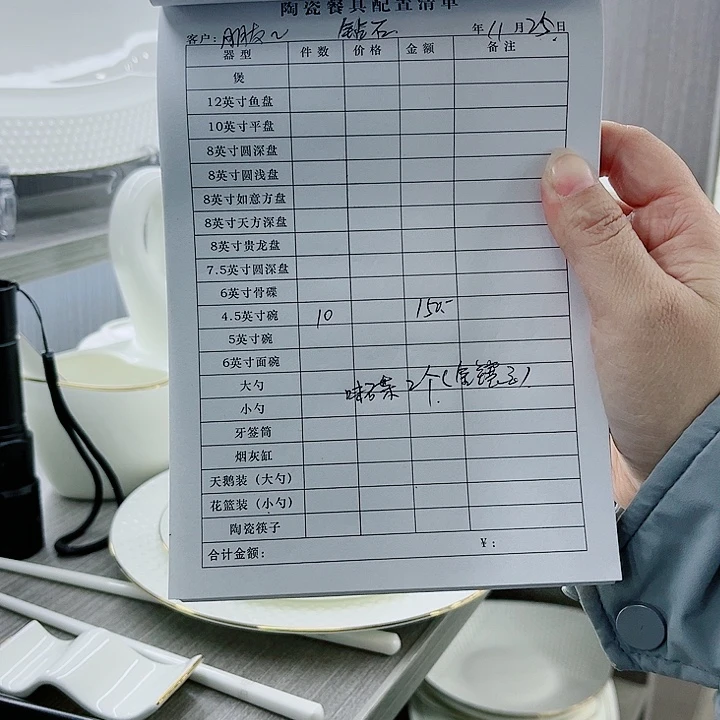 陶瓷餐具配置清单
客户： 钻石 年11月25日
器型 件数 价格 金额 备注
煲
12英寸鱼盘
10英寸平盘
8英寸圆深盘
8英寸圆浅盘
8英寸如意方盘
8英寸天方深盘
8英寸贵龙盘
7.5英寸圆深盘
6英寸骨碟
4.5英寸碗 10 150-
5英寸碗
6英寸面碗
大勺
味碟 2个
小勺
牙签筒
烟灰缸
天鹅装（大勺）
花篮装（小勺）
陶瓷筷子
合计金额： ¥：